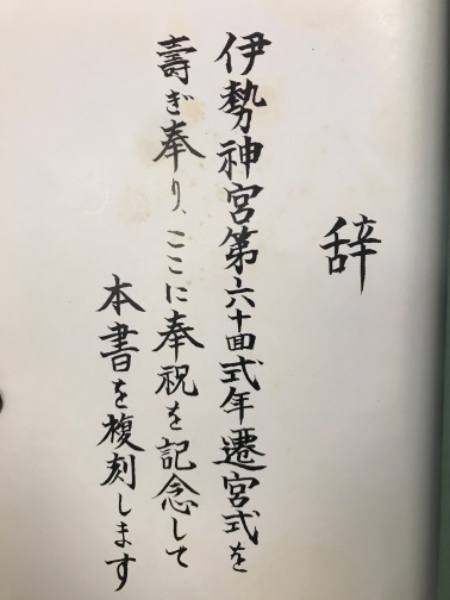 辞
伊勢神宮第六十回式年遷宮式を
壽ぎ奉り、ここに奉祝を記念して
本書を複刻します